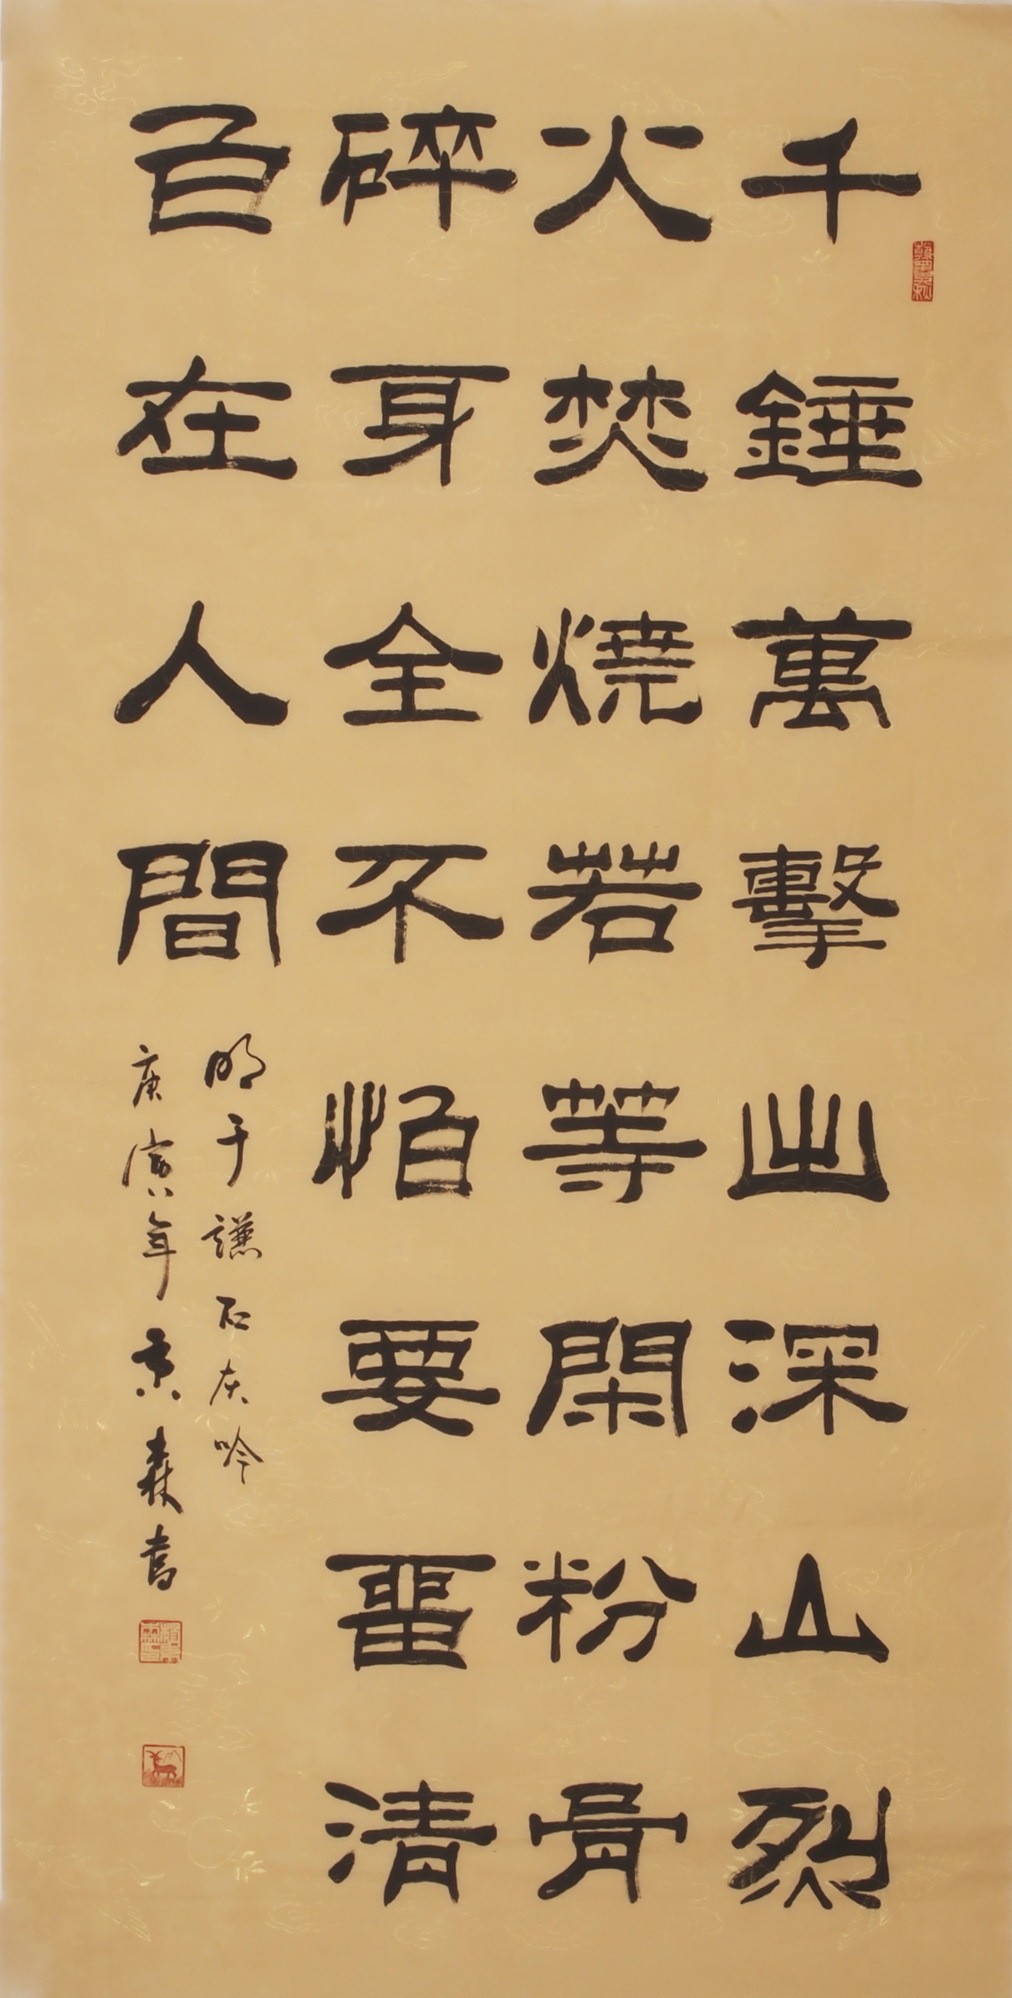 千錘萬擊出深山烈
火焚燒若等閑粉骨
碎身全不怕要畱清
白在人間
明于謙石灰吟
庚寅年景森書